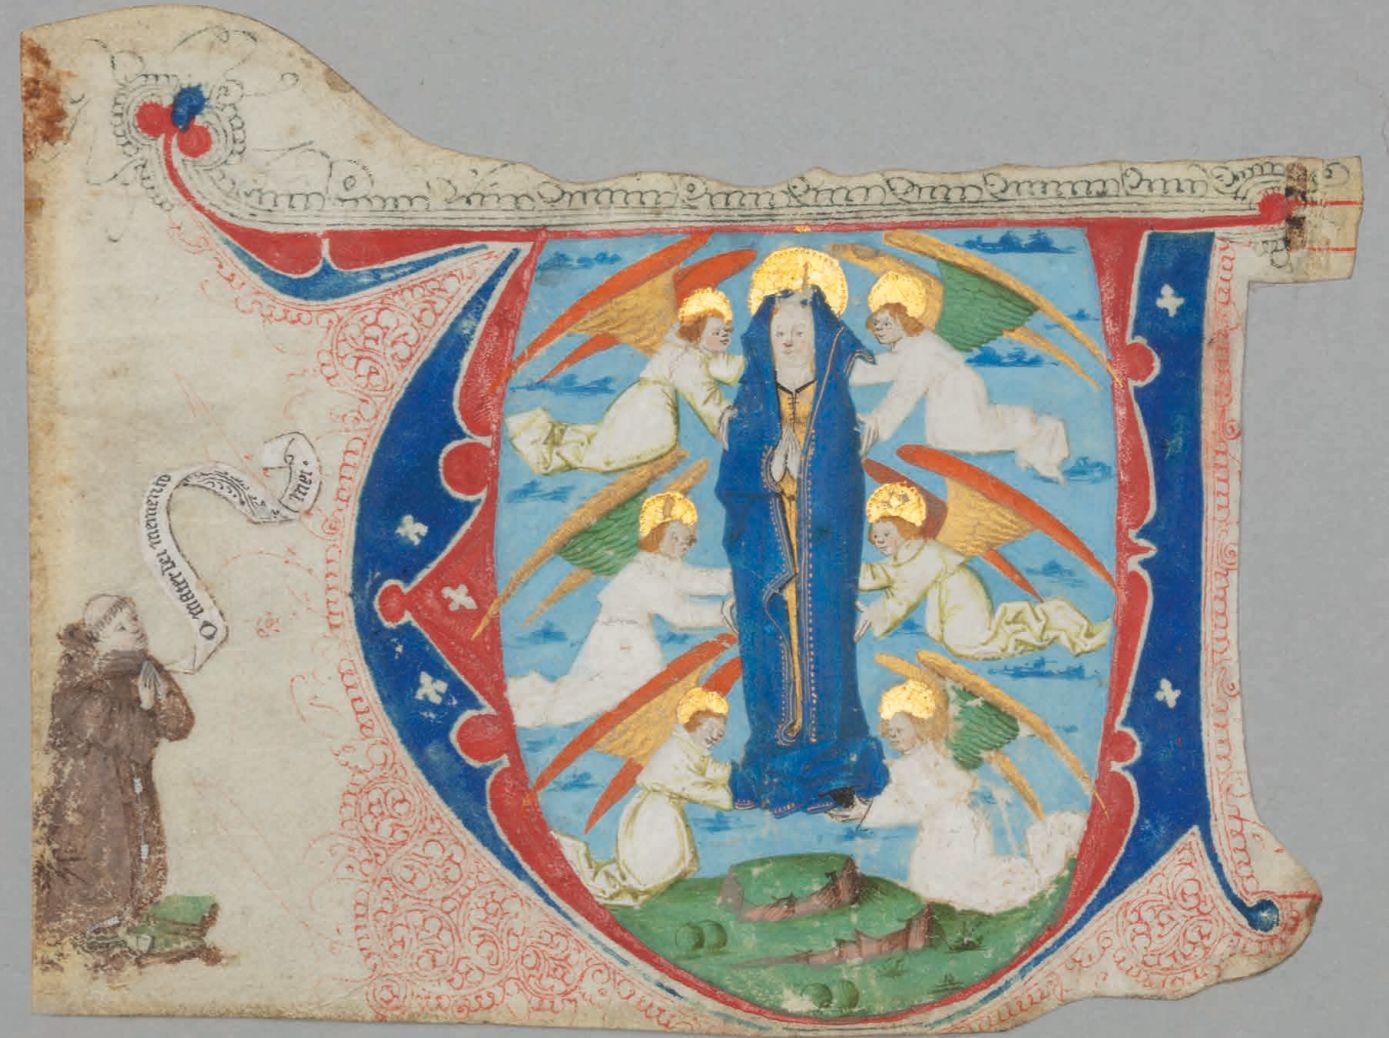 O mater dei memento mei.